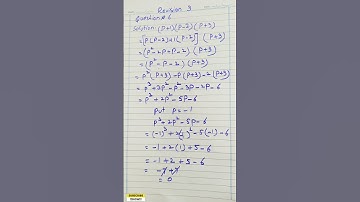 Revision 3
Question # 6
Solution: (P+1)(P-2)(P+3)
= [P(P-2)+1(P-2)] (P+3)
= (P²-2P+P-2) (P+3)
= (P²-P-2) (P+3)
= P²(P+3)-P(P+3)-2(P+3)
= P³+3P²-P²-3P-2P-6
= P³+2P²-5P-6
Put P = -1
P³+2P²-5P-6
= (-1)³+2(-1)²-5(-1)-6
= -1+2(1)+5-6
= -1+2+5-6
= -7+7
= 0